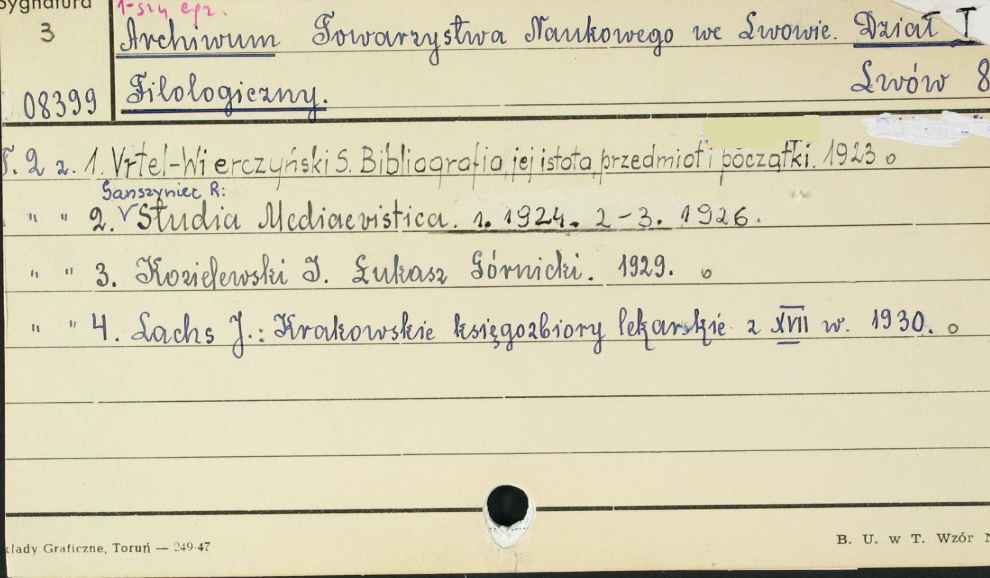 Sygnatura
1-szy egz.
3
Archiwum Towarzystwa Naukowego we Lwowie. Dział I
08399 Filologiczny. Lwów 8
T. 2 z. 1. Vrtel-Wierczyński S. Bibliografia, jej istota, przedmiot i początki. 1923
Ganszyniec R:
" " 2. Studia Mediaevistica. 1. 1924. 2-3. 1926.
" " 3. Kozielewski I. Łukasz Górnicki. 1929.
" " 4. Lachs J.: Krakowskie księgozbiory lekarskie z XVII w. 1930.
kłady Graficzne, Toruń — 249-47
B. U. w T. Wzór N